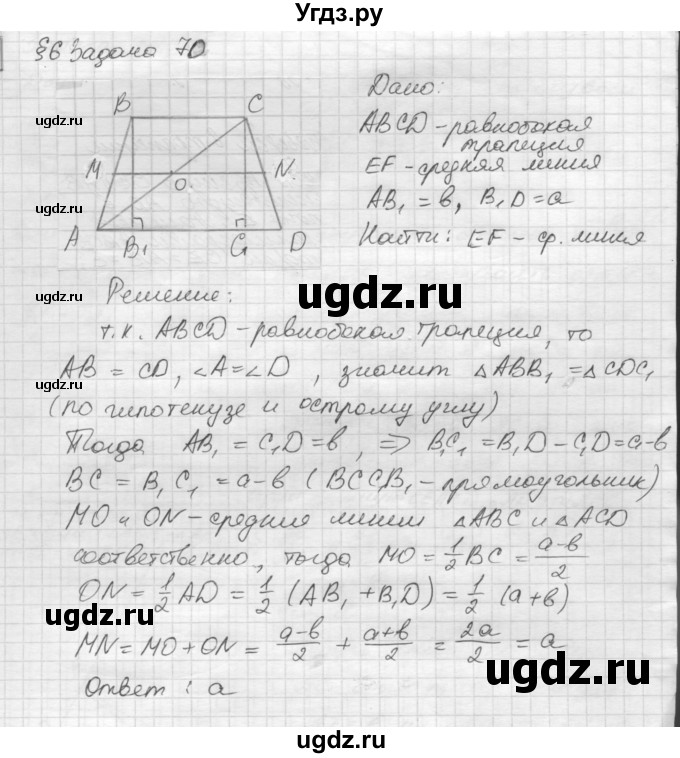 Угдз.ру
§6 Задача 70
B C
M O. N.
A B₁ C₁ D
Дано:
ABCD – равнобокая
трапеция
EF – средняя линия
AB₁ = в, B₁D = a
Найти: EF – ср. линия
ugdz.ru
ugdz.ru
ugdz.ru
ugdz.ru
Решение:
т.к. ABCD – равнобокая трапеция, то
AB = CD, ∠A = ∠D , значит △ABB₁ = △CDC₁
(по гипотенузе и острому углу)
Тогда AB₁ = C₁D = в, ⇒ B₁C₁ = B₁D – C₁D = a-в
BC = B₁C₁ = a-в (BCC₁B₁ – прямоугольник)
MO и ON – средние линии △ABC и △ACD
соответственно, тогда MO = 1/2 BC = (a-в)/2
ON = 1/2 AD = 1/2 (AB₁ + B₁D) = 1/2 (a+в)
MN = MO + ON = (a-в)/2 + (a+в)/2 = 2a/2 = a
Ответ: a
ugdz.ru
ugdz.ru
ugdz.ru
ugdz.ru
ugdz.ru